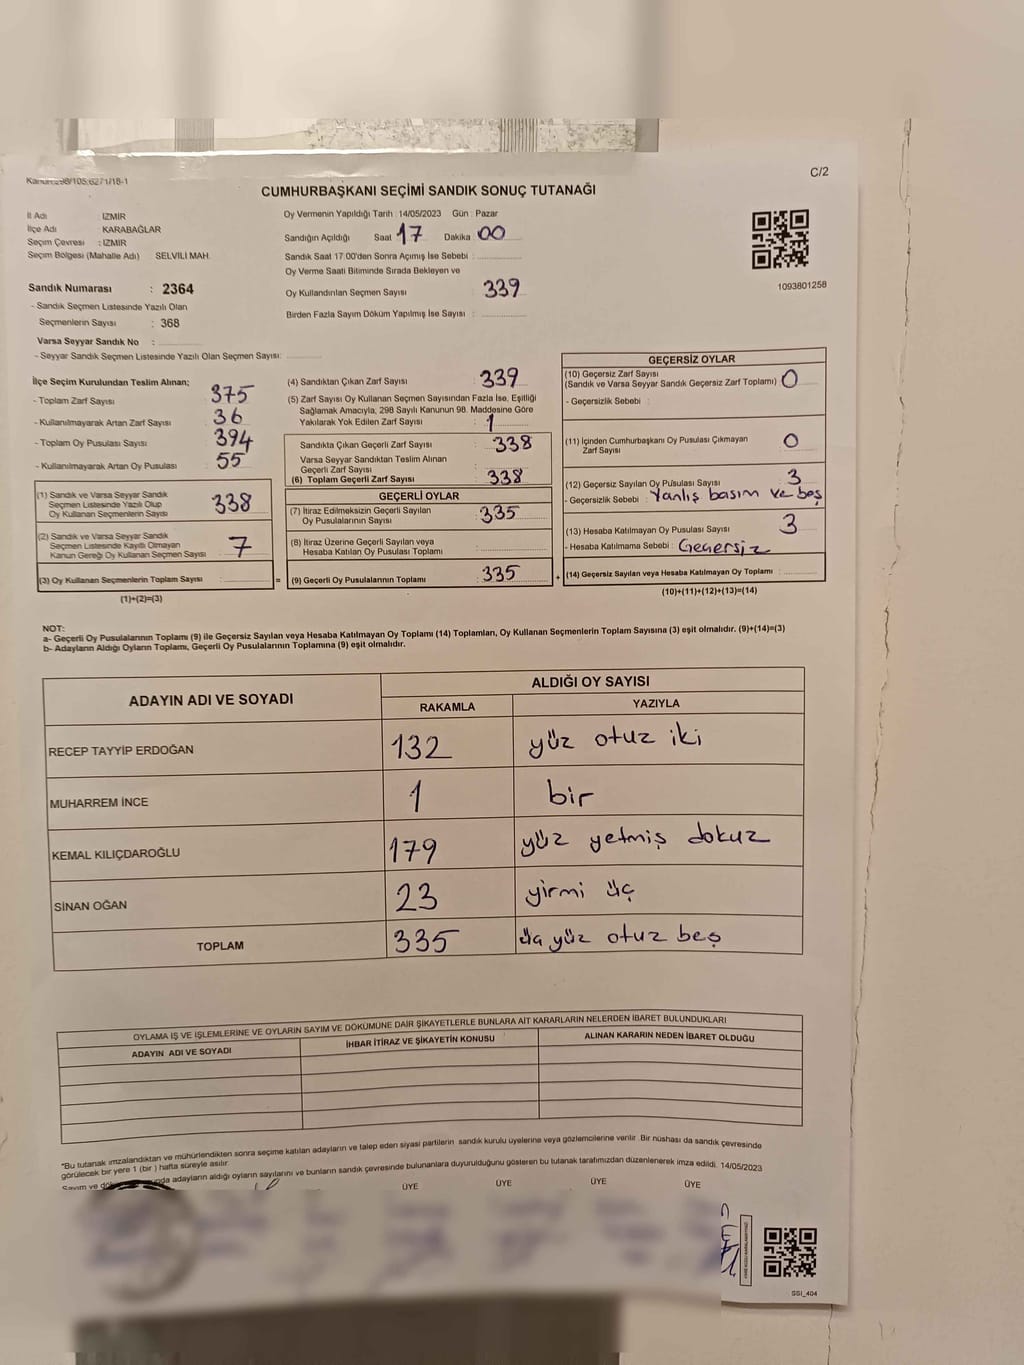 Kanun:298/105;6271/18-1
C/2
CUMHURBAŞKANI SEÇİMİ SANDIK SONUÇ TUTANAĞI
İl Adı : İZMİR
İlçe Adı : KARABAĞLAR
Seçim Çevresi : İZMİR
Seçim Bölgesi (Mahalle Adı) SELVİLİ MAH.
Sandık Numarası : 2364
- Sandık Seçmen Listesinde Yazılı Olan
Seçmenlerin Sayısı : 368
Varsa Seyyar Sandık No :
- Seyyar Sandık Seçmen Listesinde Yazılı Olan Seçmen Sayısı:
Oy Vermenin Yapıldığı Tarih : 14/05/2023 Gün : Pazar
Sandığın Açıldığı Saat 17 Dakika : 00
Sandık Saat 17.00'den Sonra Açımış İse Sebebi :
Oy Verme Saati Bitiminde Sırada Bekleyen ve
Oy Kullandırılan Seçmen Sayısı : 339
Birden Fazla Sayım Döküm Yapılmış İse Sayısı :
1093801258
İlçe Seçim Kurulundan Teslim Alınan;
- Toplam Zarf Sayısı : 375
- Kullanılmayarak Artan Zarf Sayısı : 36
- Toplam Oy Pusulası Sayısı : 394
- Kullanılmayarak Artan Oy Pusulası : 55
(1) Sandık ve Varsa Seyyar Sandık
Seçmen Listesinde Yazılı Olup
Oy Kullanan Seçmenlerin Sayısı 338
(2) Sandık ve Varsa Seyyar Sandık
Seçmen Listesinde Kayıtlı Olmayan
Kanun Gereği Oy Kullanan Seçmen Sayısı : 7
(3) Oy Kullanan Seçmenlerin Toplam Sayısı : =
(1)+(2)=(3)
(4) Sandıktan Çıkan Zarf Sayısı : 339
(5) Zarf Sayısı Oy Kullanan Seçmen Sayısından Fazla İse, Eşitliği
Sağlamak Amacıyla, 298 Sayılı Kanunun 98. Maddesine Göre
Yakılarak Yok Edilen Zarf Sayısı : 1
Sandıkta Çıkan Geçerli Zarf Sayısı : 338
Varsa Seyyar Sandıktan Teslim Alınan
Geçerli Zarf Sayısı :
(6) Toplam Geçerli Zarf Sayısı : 338
GEÇERLİ OYLAR
(7) İtiraz Edilmeksizin Geçerli Sayılan
Oy Pusulalarının Sayısı : 335
(8) İtiraz Üzerine Geçerli Sayılan veya
Hesaba Katılan Oy Pusulası Toplamı :
(9) Geçerli Oy Pusulalarının Toplamı : 335 +
GEÇERSİZ OYLAR
(10) Geçersiz Zarf Sayısı
(Sandık ve Varsa Seyyar Sandık Geçersiz Zarf Toplamı) : 0
- Geçersizlik Sebebi :
(11) İçinden Cumhurbaşkanı Oy Pusulası Çıkmayan
Zarf Sayısı : 0
(12) Geçersiz Sayılan Oy Pusulası Sayısı : 3
- Geçersizlik Sebebi : Yanlış basım ve boş
(13) Hesaba Katılmayan Oy Pusulası Sayısı : 3
- Hesaba Katılmama Sebebi : Geçersiz
(14) Geçersiz Sayılan veya Hesaba Katılmayan Oy Toplamı :
(10)+(11)+(12)+(13)=(14)
NOT:
a- Geçerli Oy Pusulalarının Toplamı (9) ile Geçersiz Sayılan veya Hesaba Katılmayan Oy Toplamı (14) Toplamları, Oy Kullanan Seçmenlerin Toplam Sayısına (3) eşit olmalıdır. (9)+(14)=(3)
b- Adayların Aldığı Oyların Toplamı, Geçerli Oy Pusulalarının Toplamına (9) eşit olmalıdır.
ADAYIN ADI VE SOYADI ALDIĞI OY SAYISI
RAKAMLA YAZIYLA
RECEP TAYYİP ERDOĞAN 132 yüz otuz iki
MUHARREM İNCE 1 bir
KEMAL KILIÇDAROĞLU 179 yüz yetmiş dokuz
SİNAN OĞAN 23 yirmi üç
TOPLAM 335 üç yüz otuz beş
OYLAMA İŞ VE İŞLEMLERİNE VE OYLARIN SAYIM VE DÖKÜMÜNE DAİR ŞİKAYETLERLE BUNLARA AİT KARARLARIN NELERDEN İBARET BULUNDUKLARI
ADAYIN ADI VE SOYADI İHBAR İTİRAZ VE ŞİKAYETİN KONUSU ALINAN KARARIN NEDEN İBARET OLDUĞU
*Bu tutanak imzalandıktan ve mühürlendikten sonra seçime katılan adayların ve talep eden siyasi partilerin sandık kurulu üyelerine veya gözlemcilerine verilir. Bir nüshası da sandık çevresinde
görülecek bir yere 1 (bir) hafta süreyle asılır.
Sayım ve adayların aldığı oyların sayılarını ve bunların sandık çevresinde bulunanlara duyurulduğunu gösteren bu tutanak tarafımızdan düzenlenerek imza edildi. 14/05/2023
ÜYE ÜYE ÜYE ÜYE
SSI_404